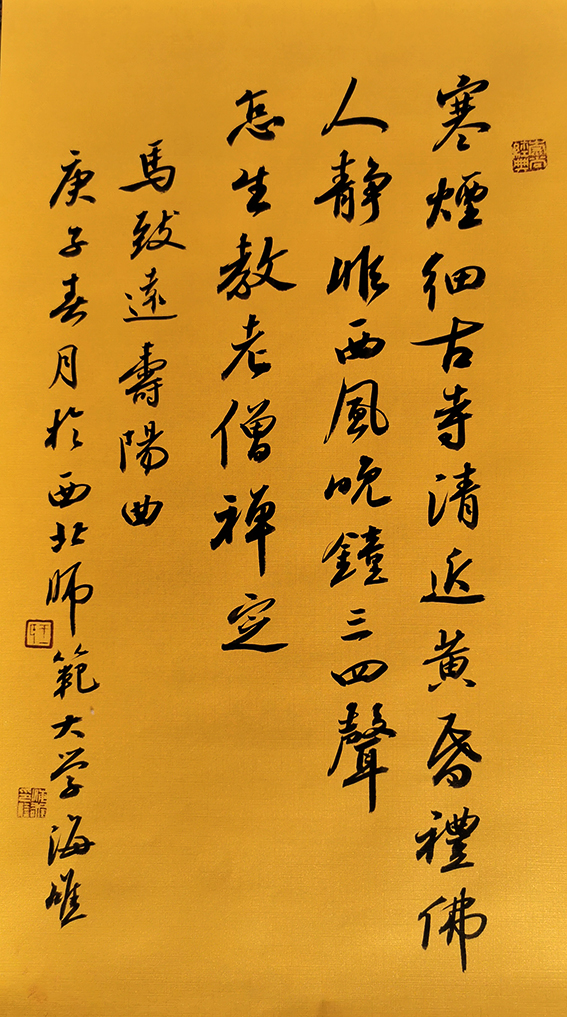 寒煙細古寺清近黃昏禮佛
人靜順西風晚鐘三四聲
怎生教老僧禪定
馬致遠壽陽曲
庚子春月於西北師範大学海雄